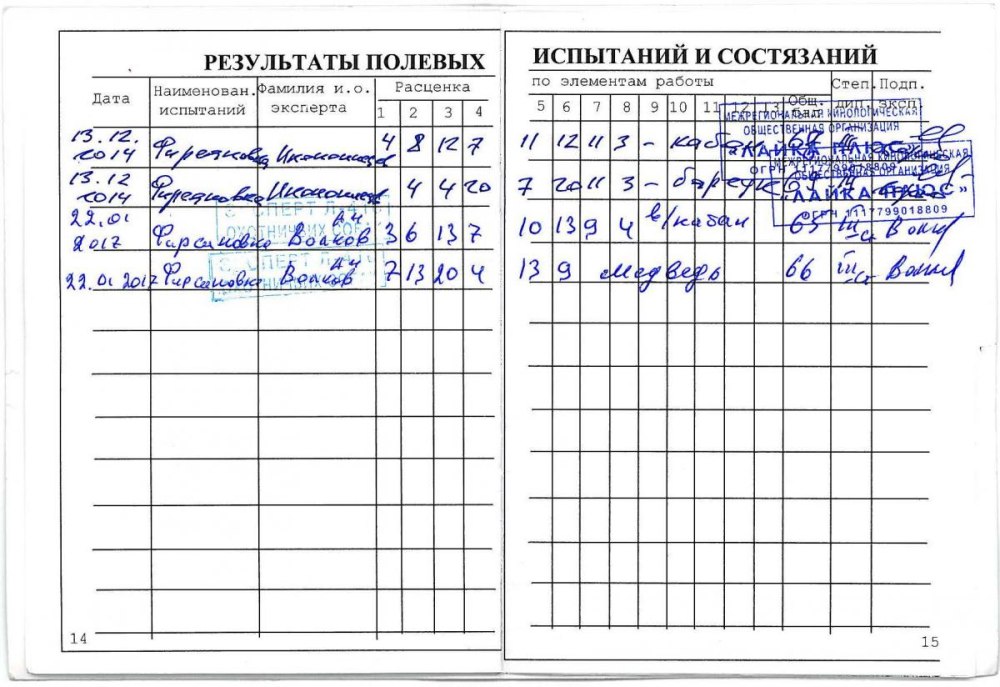 РЕЗУЛЬТАТЫ ПОЛЕВЫХ ИСПЫТАНИЙ И СОСТЯЗАНИЙ
Дата Наименован. испытаний Фамилия и.о. эксперта Расценка по элементам работы Общ. бал Степ. дип. Подп. эксп.
1 2 3 4 5 6 7 8 9 10 11 12 13
13.12. 2014 4 8 12 7 11 12 11 3 - кабан
13.12 2014 4 4 20 7 20 11 3 -
22.01 2017 Фирсановка Волков АЧ 3 6 13 7 10 13 9 4 в/кабан 65 III
22.01 2017 Фирсановка Волков АЧ 7 13 20 4 13 9 медведь 66 III
МЕЖРЕГИОНАЛЬНАЯ КИНОЛОГИЧЕСКАЯ
ОБЩЕСТВЕННАЯ ОРГАНИЗАЦИЯ
"ЛАЙКА ПЛЮС"
ОГРН 1117799018809
МЕЖРЕГИОНАЛЬНАЯ КИНОЛОГИЧЕСКАЯ
ОБЩЕСТВЕННАЯ ОРГАНИЗАЦИЯ
"ЛАЙКА ПЛЮС"
ОГРН 1117799018809
14
15